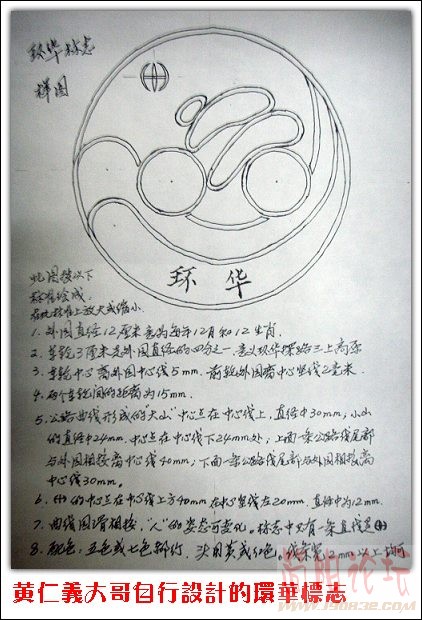 环华标志
样图
环 华
此图按以下
标准绘成,
在此标准上放大或缩小.
1. 外圆直径12厘米意为每年12月和12生肖.
2. 车轮3厘米是外圆直径的四分之一,意义环华骑路三上高原
3. 车轮中心离外圆中心线5mm, 前轮外圆离中心竖线2毫米.
4. 两个车轮间的距离为15mm.
5. 公路曲线形成的大山"中心点在中心线上, 直径中30mm; 小山
的直径中24mm. 中心点在中心线下24mm处; 上面一条公路线尾部
与外圆相接离中心线40mm; 下面一条公路线尾部与外圆相接离
中心线30mm.
6. 的中心点在中心线上方40mm 在中心竖线左20mm, 直径中为12mm.
7. 曲线圆滑相接, "人"的姿态可变化, 标志中只有一条直线是
8. 配色: 五色或七色都行. 头用黄或红色, 线条宽 2mm 以上均可
www.190832.com
黄仁義大哥自行設計的環華標志